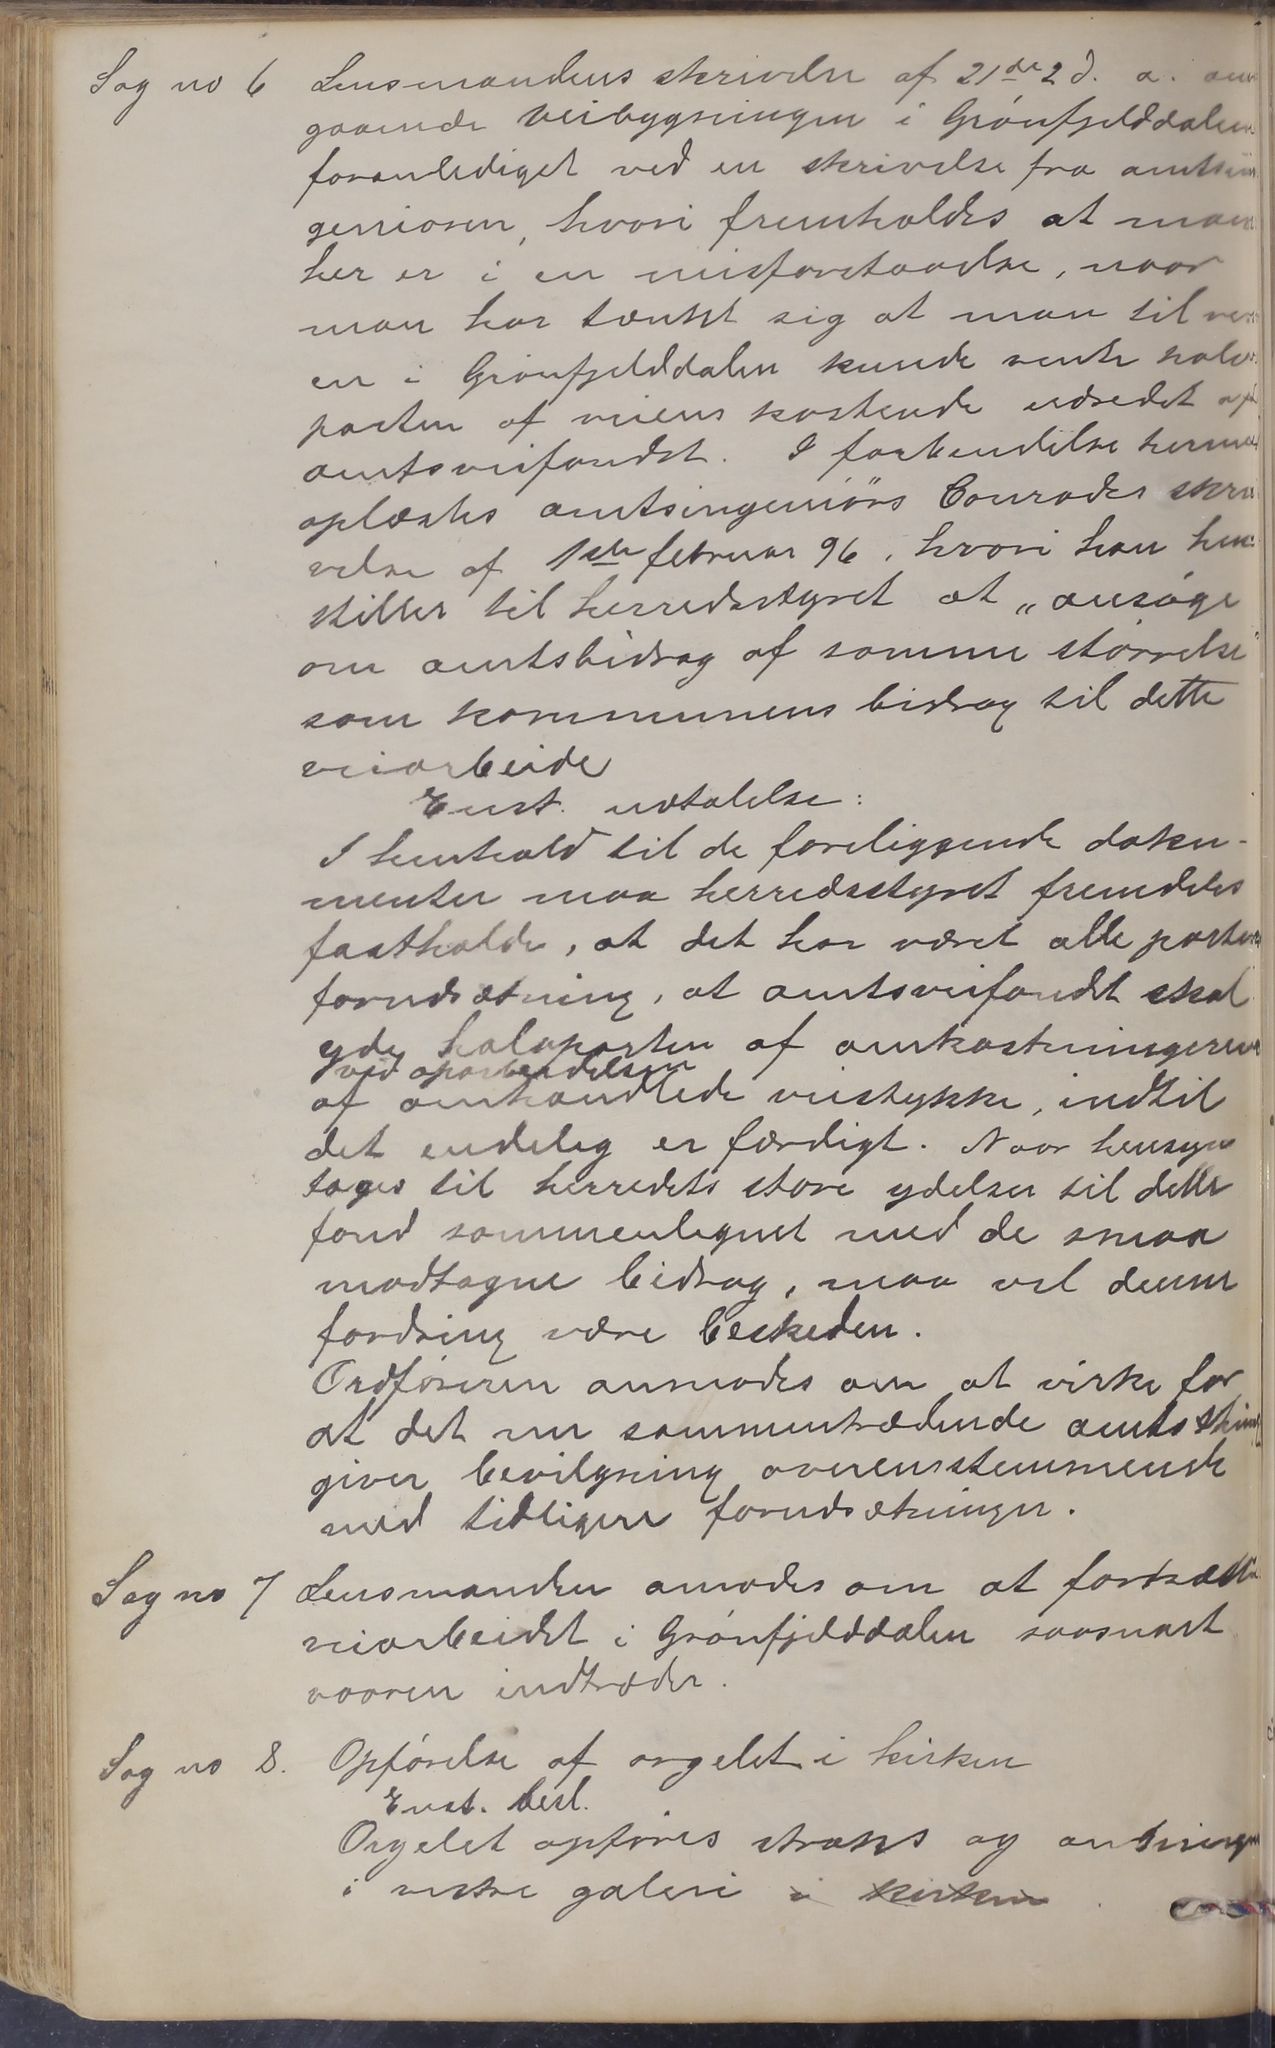 Sag no 6 Lensmandens skrivelse af 21de 2 d. a. an
gaaende veibygningen i Grönfjelddalen
foranlediget ved en skrivelse fra amtsin
geniøren, hvori fremholdes at man
her er i en misforstaaelse, naar
man har tænkt sig at man til vei
en i Grönfjelddalen kunde vente halv
parten af veiens kostende udredet af
amtsveifondet. I forbindelse hermed
oplæstes amtsingeniörs Conrades skri
velse af 1ste februar 96, hvori han hen
stiller til herredsstyret at „ansöge
om amtsbidrag af samme störrelse
som kommunens bidrag til dette
veiarbeide
Enst. udtalelse:
I henhold til de foreliggende doku-
menter maa herredsstyret fremdeles
fastholde, at det har været alle parters
forudsætning, at amtsveifondet skal
yde halvparten af omkostningerne
ved oparbeidelsen
af omhandlede veistykke, indtil
det endelig er færdigt. Naar hensyn
tages til herredets store ydelser til dette
fond sammenlignet med de smaa
modtagne bidrag, maa vel denne
fordring være beskeden.
Ordföreren anmodes om at virke for
at det nu sammentrædende amtsthing
giver bevilgning overensstemmende
med tidligere forudsætninger.
Sag no 7 Lensmanden amodes om at fortsætte
veiarbeidet i Grönfjelddalen saasnart
vaaren indtræder.
Sag no 8. Opförelse af orgelet i kirken
Enst. besl.
Orgelet opföres straks og anbringes
i vestre galeri i kirken